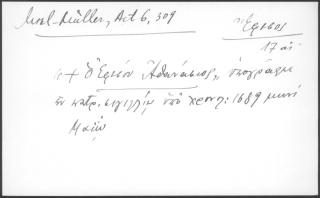 Mikl-Müller, Act 6, 309
Ἔφεσος
17 αἰ.
"+ Ὁ Ἐφέσου Ἀθανάσιος", ὑπογράφει
ἐν πατρ. σιγιλλίῳ ὑπὸ χρονλ: 1689 μηνὶ
Μαΐῳ